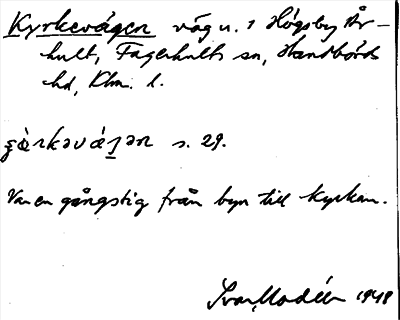 Kyrkevägen väg n. 1 Högsby År-
hult, Fagerhults sn, Handbörds
hd, Klm. l.
s. 29.
Var en gångstig från byn till kyrkan.
Ivar Modéer 1948